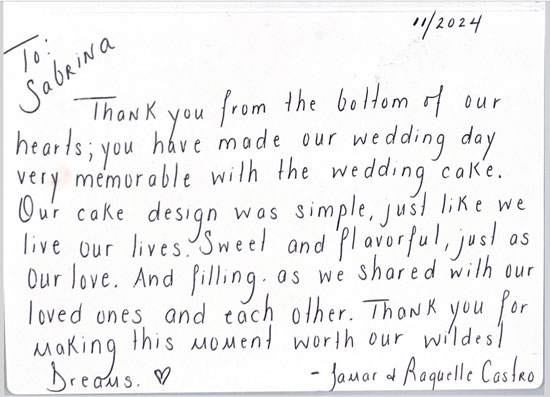 11/2024
To:
Sabrina
Thank you from the bottom of our
hearts; you have made our wedding day
very memorable with the wedding cake.
Our cake design was simple, just like we
live our lives. Sweet and flavorful, just as
our love. And filling. as we shared with our
loved ones and each other. Thank you for
making this moment worth our wildest
Dreams. ♡
- Jamar & Raquelle Castro